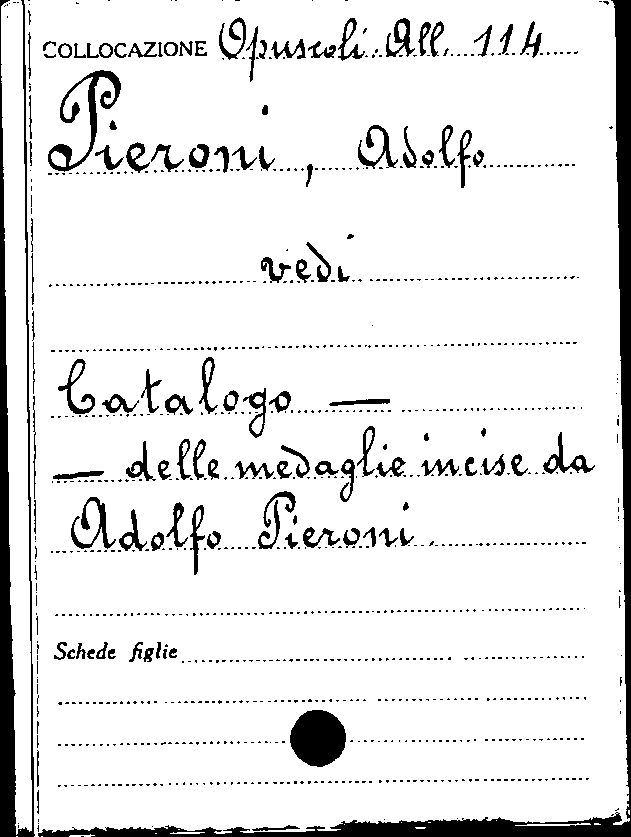 COLLOCAZIONE Opuscoli. All. 114
Pieroni, Adolfo
vedi
Catalogo —
— delle medaglie incise da
Adolfo Pieroni.
Schede figlie